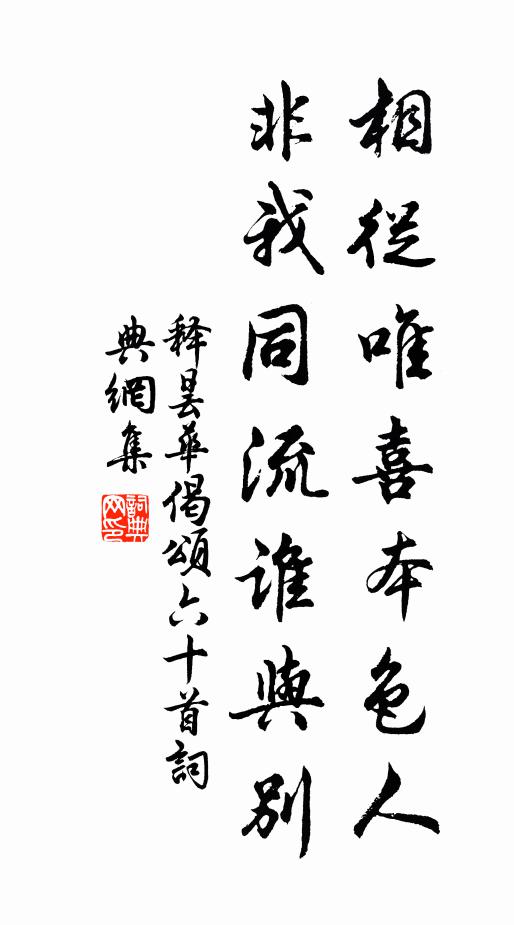 相從唯喜本色人
非我同流誰與別
释曇華偈頌六十首詞
典網集
詞典
网印